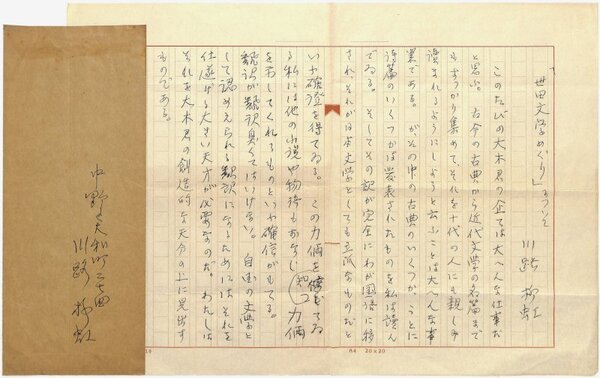 「世界文学めぐり」について
川路柳虹
このたびの大木君の企ては大へんな仕事だ
と思ふ。古今の古典から近代文学の名篇まで
もすつかり集めて、それを十代の人にも親しみ
讀まれるようにしようと云ふことは大へんな事
業である。がその中の古典のいくつか、ことに
詩篇のいくつかは発表されたものを私は讀ん
でゐる。そしてその訳が完全にわが國語に移
され、それが日本文学としても立派なものだと
いふ確證を得てゐる。この力倆を信じてゐ
る私には他の小説や物語もおなじ力倆
を示してくれるものといふ確信がもてる。
飜訳が飜訳臭くてはいけない。自国の文学と
して認めえられる飜訳になるためにはそれを
仕遂げる大きい天才が必要なのだ。わたしは
それを大木君の創造的な天分の上に見出す
ものである。
A4 20×20
中野区大和町
川路柳虹